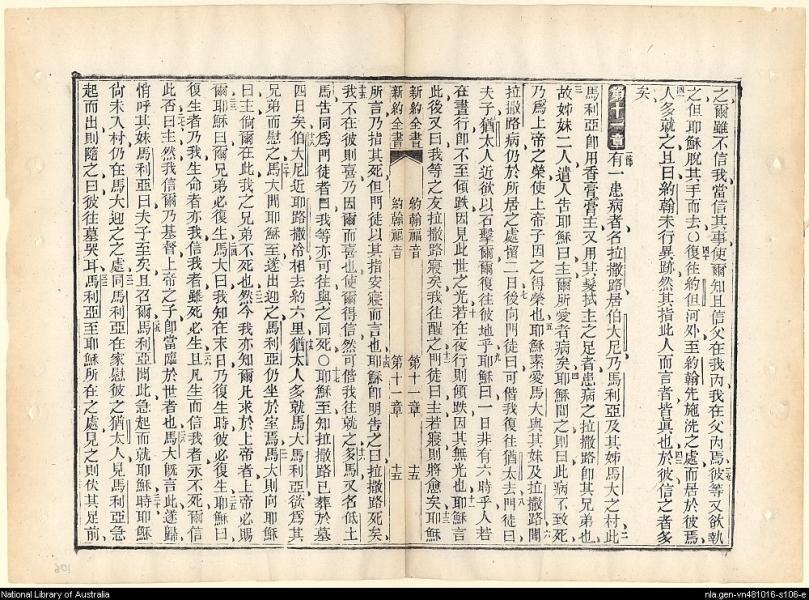 之爾雖不信我當信其事使爾知且信父在我內我在父內焉彼等又欲執
之但耶穌脫其手而去〇復往約但河外至約翰先施洗之處而居於彼焉
人多就之且曰約翰未行異跡然其指此人而言者皆真也於彼信之者多
矣
第十一章 有一患病者名拉撒路居伯大尼乃馬利亞及其姊馬大之村此
馬利亞即用香膏膏主又用其髮拭主之足者患病之拉撒路即其兄弟也
故姊妹二人遣人告耶穌曰主爾所愛者病矣耶穌聞之則曰此病不致死
乃爲上帝之榮使上帝子因之得榮也耶穌素愛馬大與其妹及拉撒路聞
拉撒路病仍於所居之處留二日後向門徒曰可偕我復往猶太去門徒曰
夫子猶太人近欲以石擊爾爾復往彼地乎耶穌曰一日非有六時乎人若
在晝行即不至傾跌因見此世之光若在夜行則傾跌因其無光也耶穌言
此後又曰我等之友拉撒路寢矣我往醒之門徒曰主若寢則將愈矣耶穌
新約全書 約翰福音 第十一章 十五
新約全書 約翰福音 第十一章 十五
所言乃指其死但門徒以其指安寢而言也耶穌即明告之曰拉撒路死矣
我不在彼則喜乃因爾而喜也使爾得信然可偕我往就之多馬又名低土
馬告同爲門徒者曰我等亦可往與之同死〇耶穌至知拉撒路已葬於墓
四日矣伯大尼近耶路撒冷相去約六里猶太人多就馬大馬利亞欲爲其
兄弟而慰之馬大聞耶穌至遂出迎之馬利亞仍坐於室焉馬大則向耶穌
曰主倘爾在此我之兄弟不死也然今我亦知爾凡求於上帝者上帝必賜
爾耶穌曰爾兄弟必復生馬大曰我知在末日乃復生時彼必復生耶穌曰
復生者乃我生命者亦我信我者雖死必生且凡生而信我者永不死爾信
此否曰主然我信爾乃基督上帝之子即當臨於世者也馬大既言此遂歸
悄呼其妹馬利亞曰夫子至矣且召爾馬利亞聞此急起而就耶穌時耶穌
尚未入村仍在馬大迎之之處同馬利亞在家慰彼之猶太人見馬利亞急
起而出則隨之曰彼往墓哭耳馬利亞至耶穌所在之處見之則伏其足前
National Library of Australia
nla.gen-vn481016-s106-e